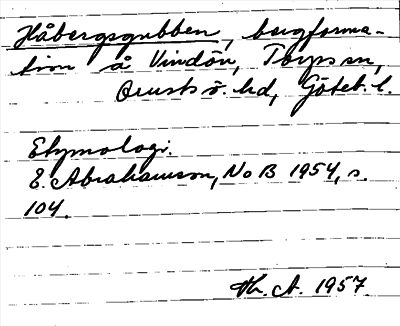 Håbergsgubben, bergforma-
tion å Vindön, Torps sn,
Orusts ö. hd, Göteb. l.
Etymologi.
E. Abrahamson, NoB 1954, s.
104.
Th. A. 1957